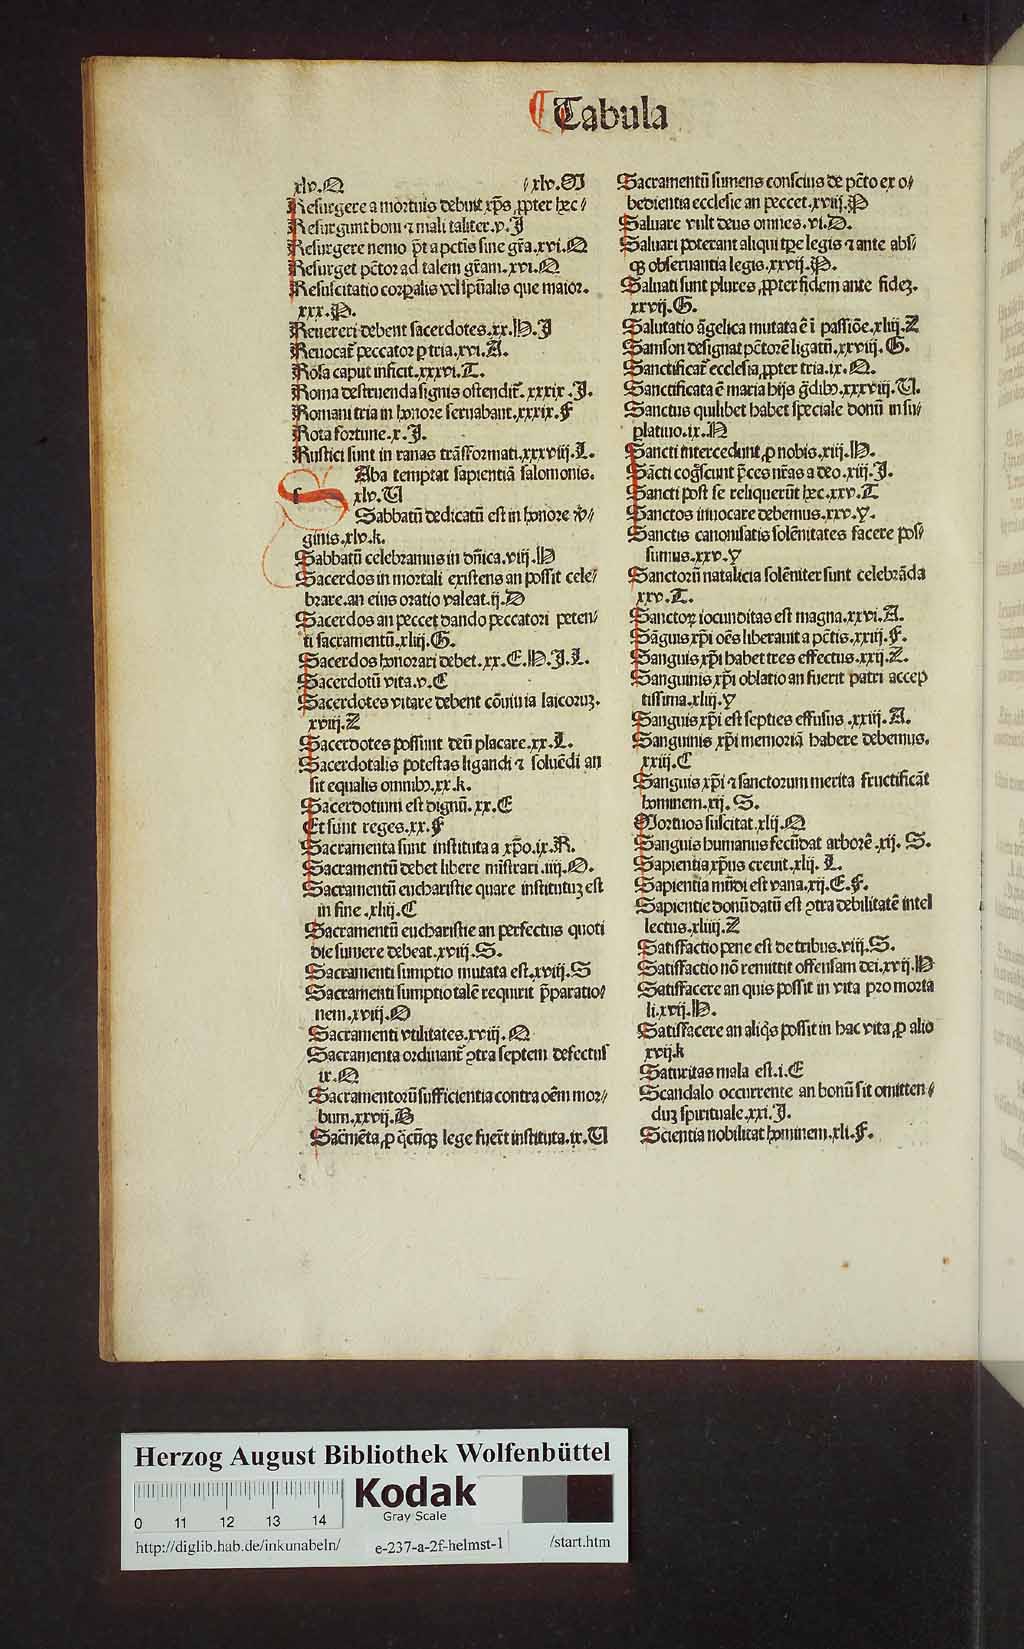 Tabula
xlv.Q ⸗xlv.M
Resurgere a mortuis debuit xp̄s ꝓpter hec⸗
Resurgunt boni ⁊ mali taliter.v.J
Resurgere nemo pōt a pctīs sine grā.xvi.Q
Resurget pctōr ad talem grām.xvi.Q
Resuscitatio corꝑalis vel spūalis que maior.
xxx.P.
Reuereri debent sacerdotes.xx.H.J
Reuocat᷑ peccator ꝑ tria.xvi.A.
Rosa caput inficit.xxxvi.T.
Roma destruenda signis ostendit᷑.xxxix.J.
Romani tria in honore seruabant.xxxix.F
Rota fortune.x.J.
Rustici sunt in ranas trāsformati.xxxviij.L.
Saba temptat sapientiā salomonis.
xlv.U
Sabbatū dedicatū est in honore v̄⸗
ginis.xlv.k.
Sabbatū celebramus in dn̄ica.viij.H
Sacerdos in mortali existens an possit cele⸗
brare.an eius oratio valeat.ij.D
Sacerdos an peccet dando peccatori peten⸗
ti sacramentū.xliij.G.
Sacerdos honorari debet.xx.E.H.J.L.
Sacerdotū vita.v.C
Sacerdotes vitare debent cōuiuia laicoruꝫ.
xviij.Z
Sacerdotes possunt deū placare.xx.L.
Sacerdotalis potestas ligandi ⁊ soluēdi an
sit equalis omnibꝰ.xx.k.
Sacerdotium est dignū.xx.E
Et sunt reges.xx.F
Sacramenta sunt instituta a xp̄o.ix.R.
Sacramentū debet libere mīstrari.iiij.O.
Sacramentū eucharistie quare institutuꝫ est
in fine.xliij.C
Sacramentū eucharistie an perfectus quoti
die sumere debeat.xviij.S.
Sacramenti sumptio mutata est.xviij.S
Sacramenti sumptio talē requirit p̄paratio⸗
nem.xviij.O
Sacramenti vtilitates.xviij.Q
Sacramenta ordinant᷑ ꝯtra septem defectus
ix.Q
Sacramentorū sufficientia contra oēm mor⸗
bum.xxvij.B
Sacr̄mēta, ꝓ q̄cūqꝫ lege fuer̄t instituta.ix.U
Sacramentū sumens conscius de pctō ex o⸗
bedientia ecclesie an peccet.xviij.P
Saluare vult deus omnes.vi.D.
Saluari poterant aliqui tpe legis ⁊ ante abs⸗
qꝫ obseruantia legis.xxvij.P.
Saluati sunt plures ꝓpter fidem ante fideꝫ.
xxvij.G.
Salutatio āgelica mutata ē ī passiōe.xliij.Z
Samson designat pctōrē ligatū.xxviij.G.
Sanctificat᷑ ecclesia ꝓpter tria.ix.O.
Sanctificata ē maria hijs gdībꝰ.xxxviij.U.
Sanctus quilibet habet speciale donū in su⸗
ꝑlatiuo.ix.N
Sancti intercedunt ꝓ nobis.xiij.H.
Sācti cogscūnt p̄ces nr̄as a deo.xiij.J.
Sancti post se reliquerūt hec.xxv.T
Sanctos inuocare debemus.xxv.Y.
Sanctis canonisatis solēnitates facere pos⸗
sumus.xxv.Y
Sanctorū natalicia solēniter sunt celebrāda
xxv.T.
Sanctoꝝ iocunditas est magna.xxvi.A.
Sāguis xp̄i oēs liberauit a pctīs.xxiij.F.
Sanguis xp̄i habet tres effectus.xxij.Z.
Sanguinis xp̄i oblatio an fuerit patri accep
tissima.xliij.Y
Sanguis xp̄i est septies effusus.xxiij.A.
Sanguinis xp̄i memoriā habere debemus.
xxiij.C
Sanguis xp̄i ⁊ sanctorum merita fructificāt
hominem.xij.S.
Mortuos suscitat.xlij.Q
Sanguis humanus fecūdat arborē.xij.S.
Sapientia xpīus creuit.xlij.L.
Sapientia mūdi est vana.xij.E.F.
Sapientie donū datū est ꝯtra debilitatē intel
lectus.xliij.Z
Satisfactio pene est de tribus.viij.S.
Satisfactio nō remittit offensam dei.xvij.H
Satisfacere an quis possit in vita pro morta
li.xvij.H.
Satisfacere an aliq̇s possit in hac vita ꝓ alio
xvij.k
Saturitas mala est.i.E
Scandalo occurrente an bonū sit omitten⸗
duꝫ spirituale.xxi.J.
Scientia nobilitat hominem.xli.F.
Herzog August Bibliothek Wolfenbüttel
Kodak
Gray Scale
0 11 12 13 14
http://diglib.hab.de/inkunabeln/ e-237-a-2f-helmst-1 /start.htm